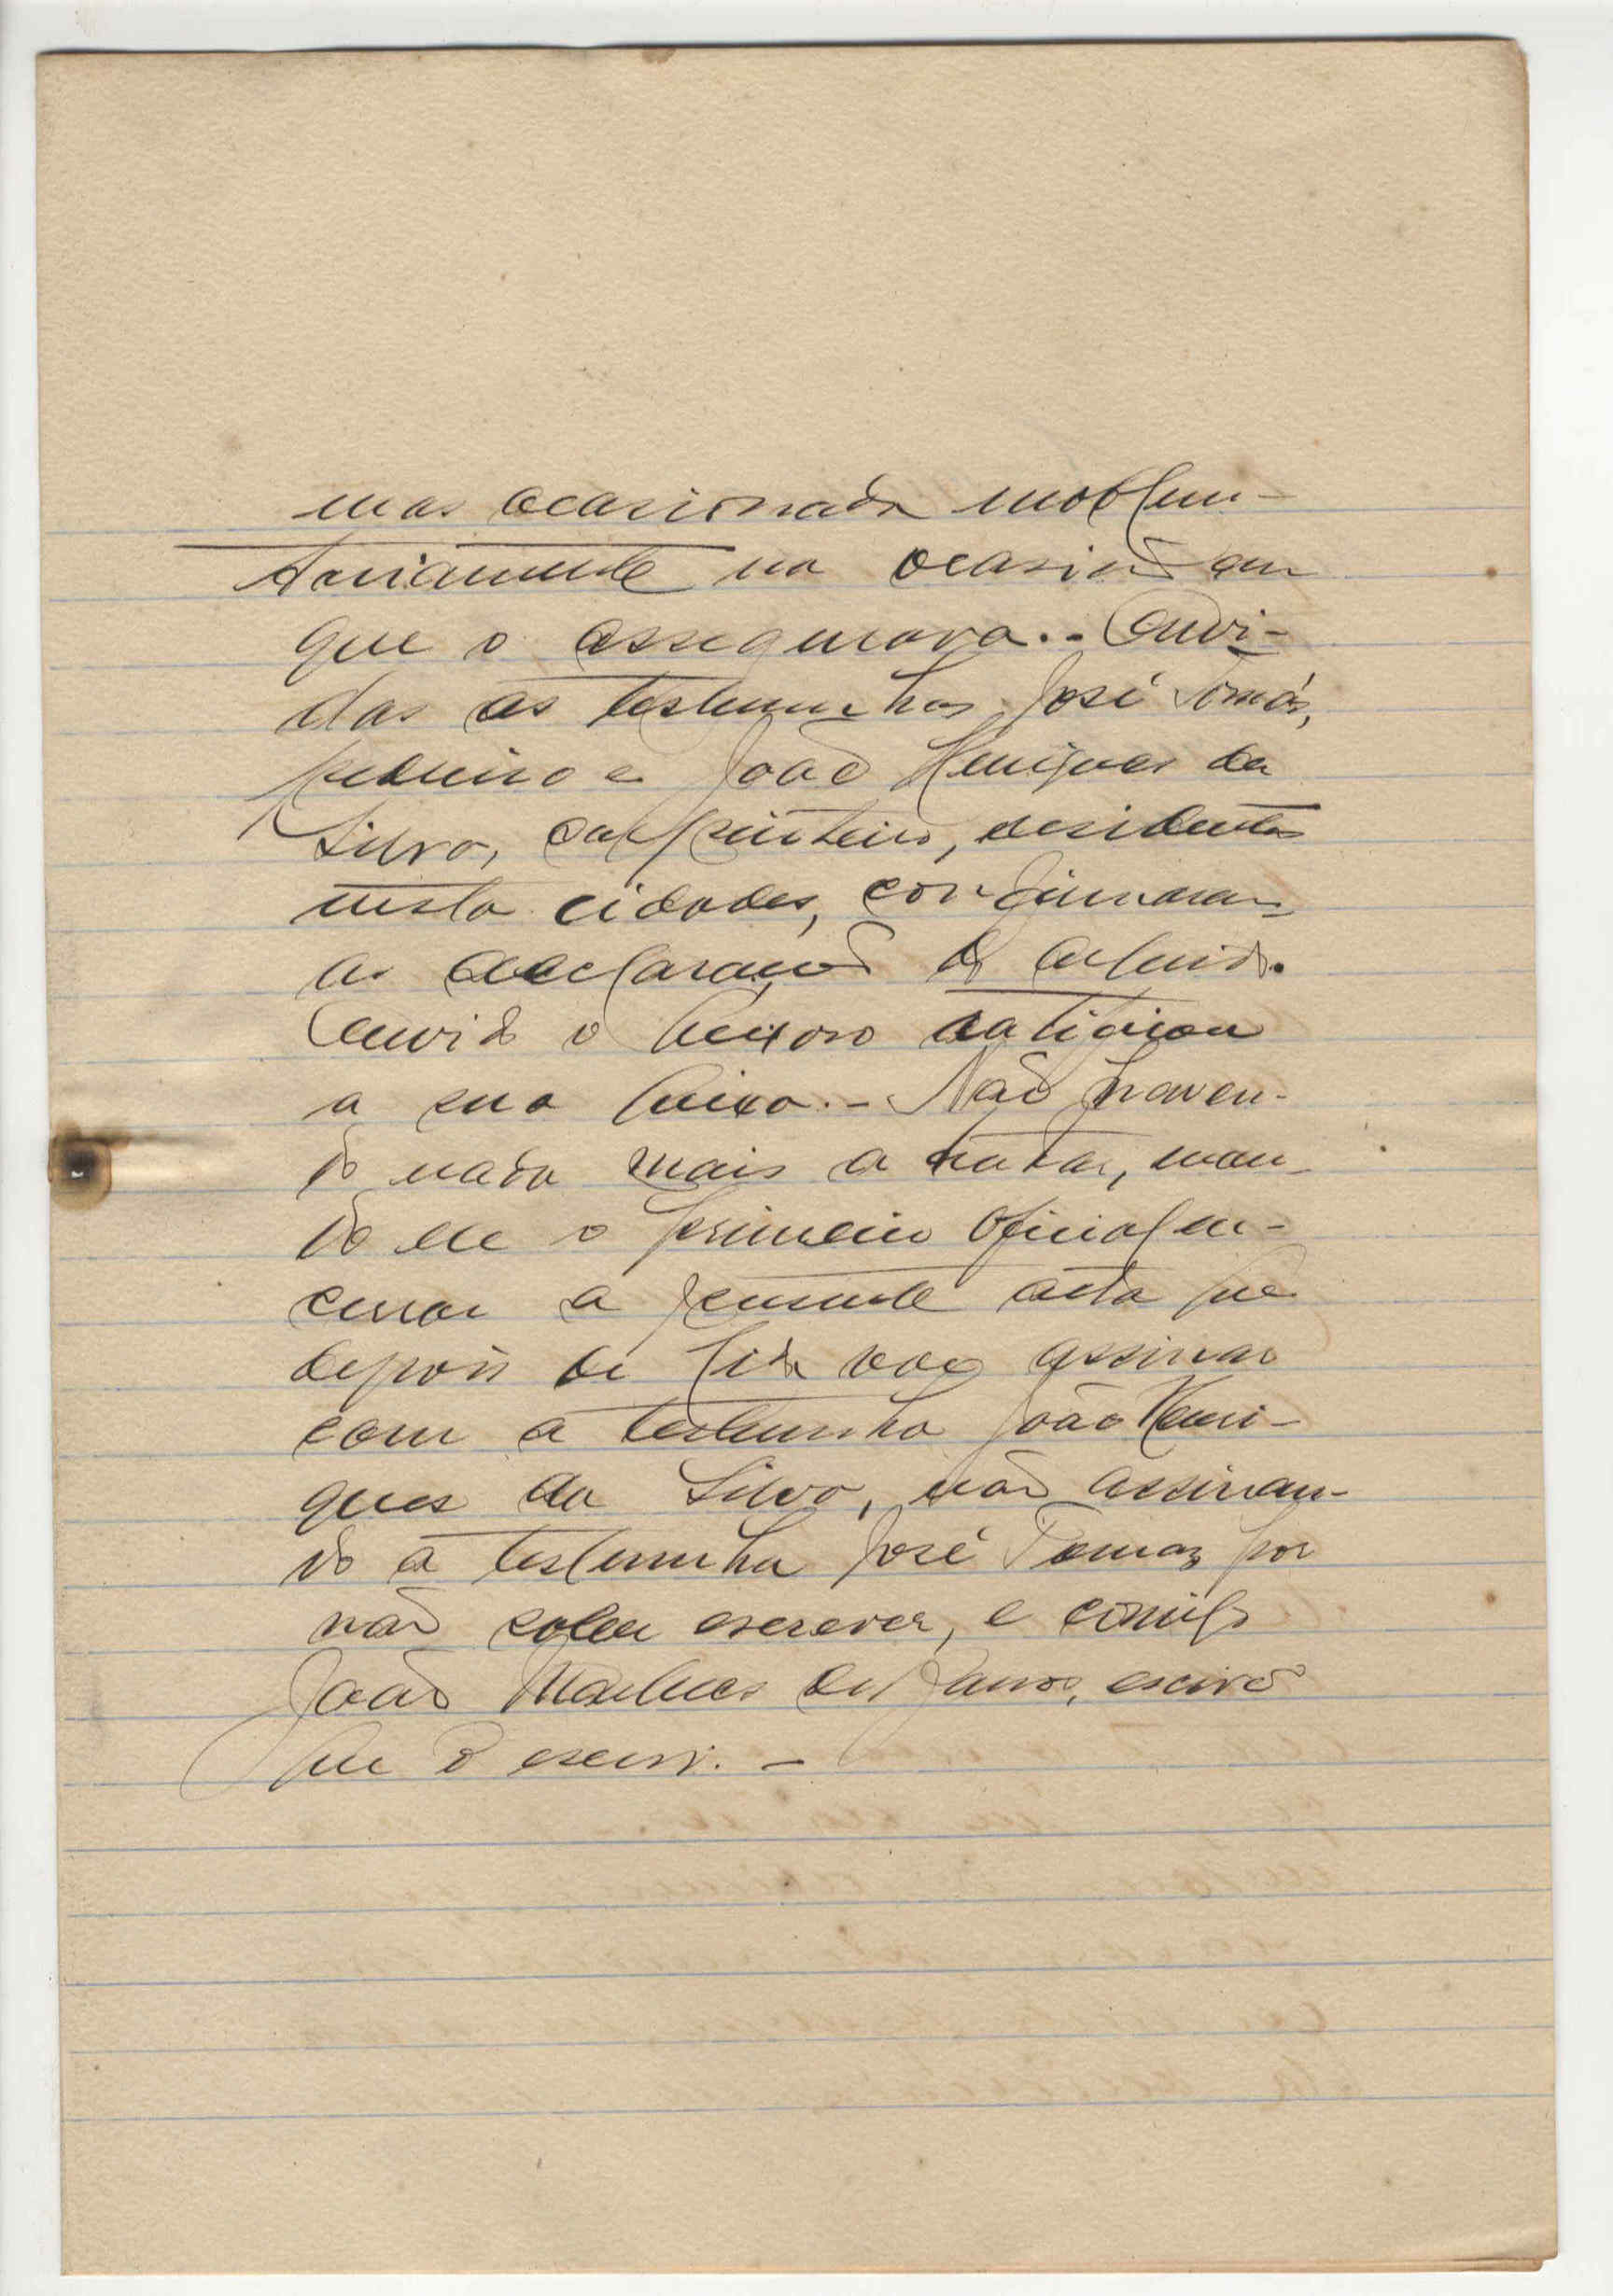 mas ocasionada involun-
tariamente na ocasião em
que o assegurava.- Ouvi-
das as testemunhas José Tomás,
pedreiro e João Henriques da
Silva, carpinteiro, residentes
nesta cidade, confirmaram
as declarações do arguido.
Ouvido o queixoso ratificou
a sua queixa.- Não haven-
do nada mais a tratar, man-
do ele o primeiro oficial en-
cerrar a presente acta que
depois de lida vae assinar
com a testemunha João Henri-
ques da Silva, não assinan-
do a testemunha José Tomaz por
não saber escrever, e comigo
João Martins escrivão
que o escrevi.-